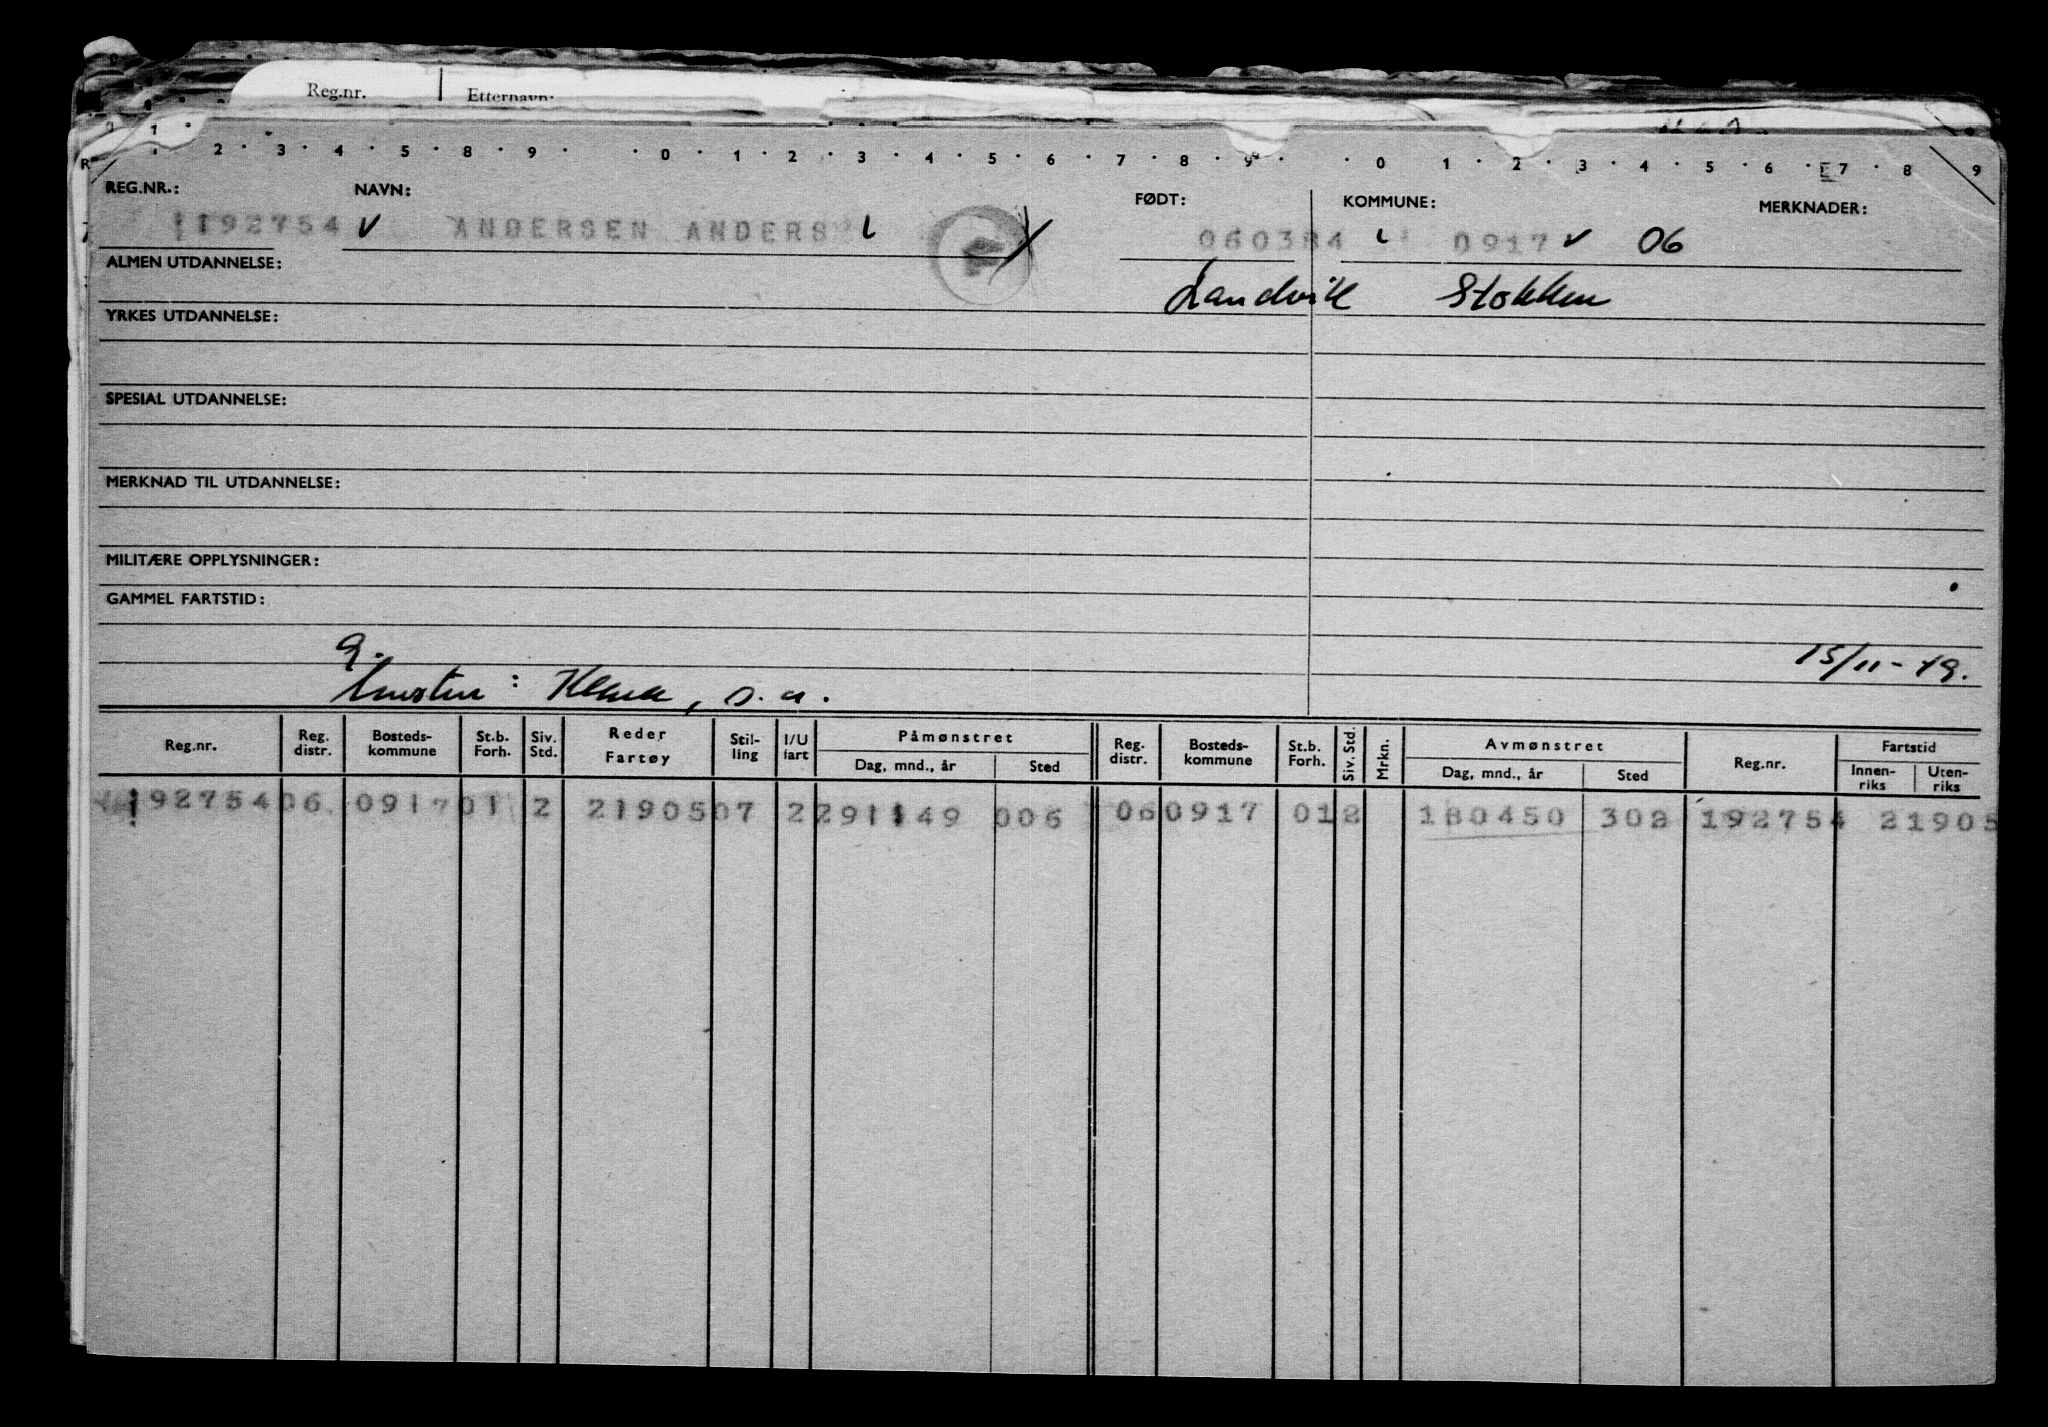 Reg.nr. Etternavn:
1 2 3 4 5 6 8 9 0 1 2 3 4 5 6 7 8 9 0 1 2 3 4 5 6 7 8 9
REG.NR.: NAVN: FØDT: KOMMUNE: MERKNADER:
192754 ANDERSEN ANDERS 060384 0917 06
ALMEN UTDANNELSE: Landvik Stokken
YRKES UTDANNELSE:
SPESIAL UTDANNELSE:
MERKNAD TIL UTDANNELSE:
MILITÆRE OPPLYSNINGER:
GAMMEL FARTSTID:
g. 15/11-49.
: Klara, s.a.
Reg.nr. Reg. distr. Bosteds-kommune St.b. Forh. Siv. Std. Reder Fartøy Stil-ling I/U fart Påmønstret Dag, mnd., år Sted Reg. distr. Bosteds-kommune St.b. Forh. Siv. Std. Mrkn. Avmønstret Dag, mnd., år Sted Reg.nr. Fartstid Innen-riks Uten-riks
192754 06 0917 01 2 21905 07 2 291149 006 06 0917 01 2 180450 302 192754 21905